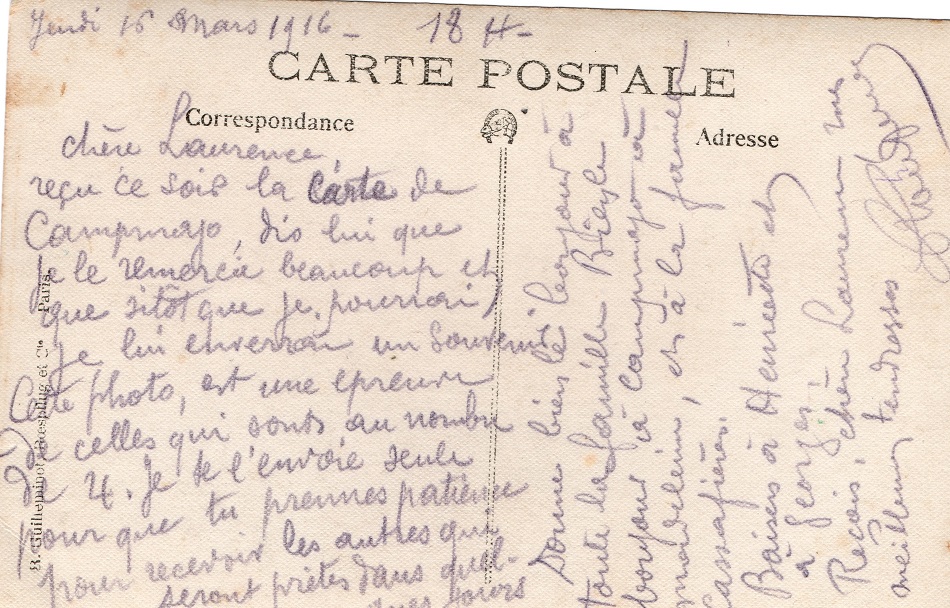 Jeudi 16 Mars 1916 - 18 H -
CARTE POSTALE
Correspondance
Adresse
chère Laurence,
reçu ce soir la carte de
Campmajo, dis lui que
je le remercie beaucoup et
que sitôt que je pourrai,
je lui enverrai un souvenir
Cette photo, est une épreuve
de celles qui sont au nombre
de 4. Je te l'envoie seule
pour que tu prennes patience
pour recevoir les autres qui
seront prêtes dans quel-
ques jours
Donne bien le bonjour à
toute la famille
bonjour à Campmajo à
et à la famille
Cassafières.
Baisers à et
à Georges
Reçois, chère Laurence mes
meilleures tendresses
S. Guilleminot, Bœspflug et Cie Paris.